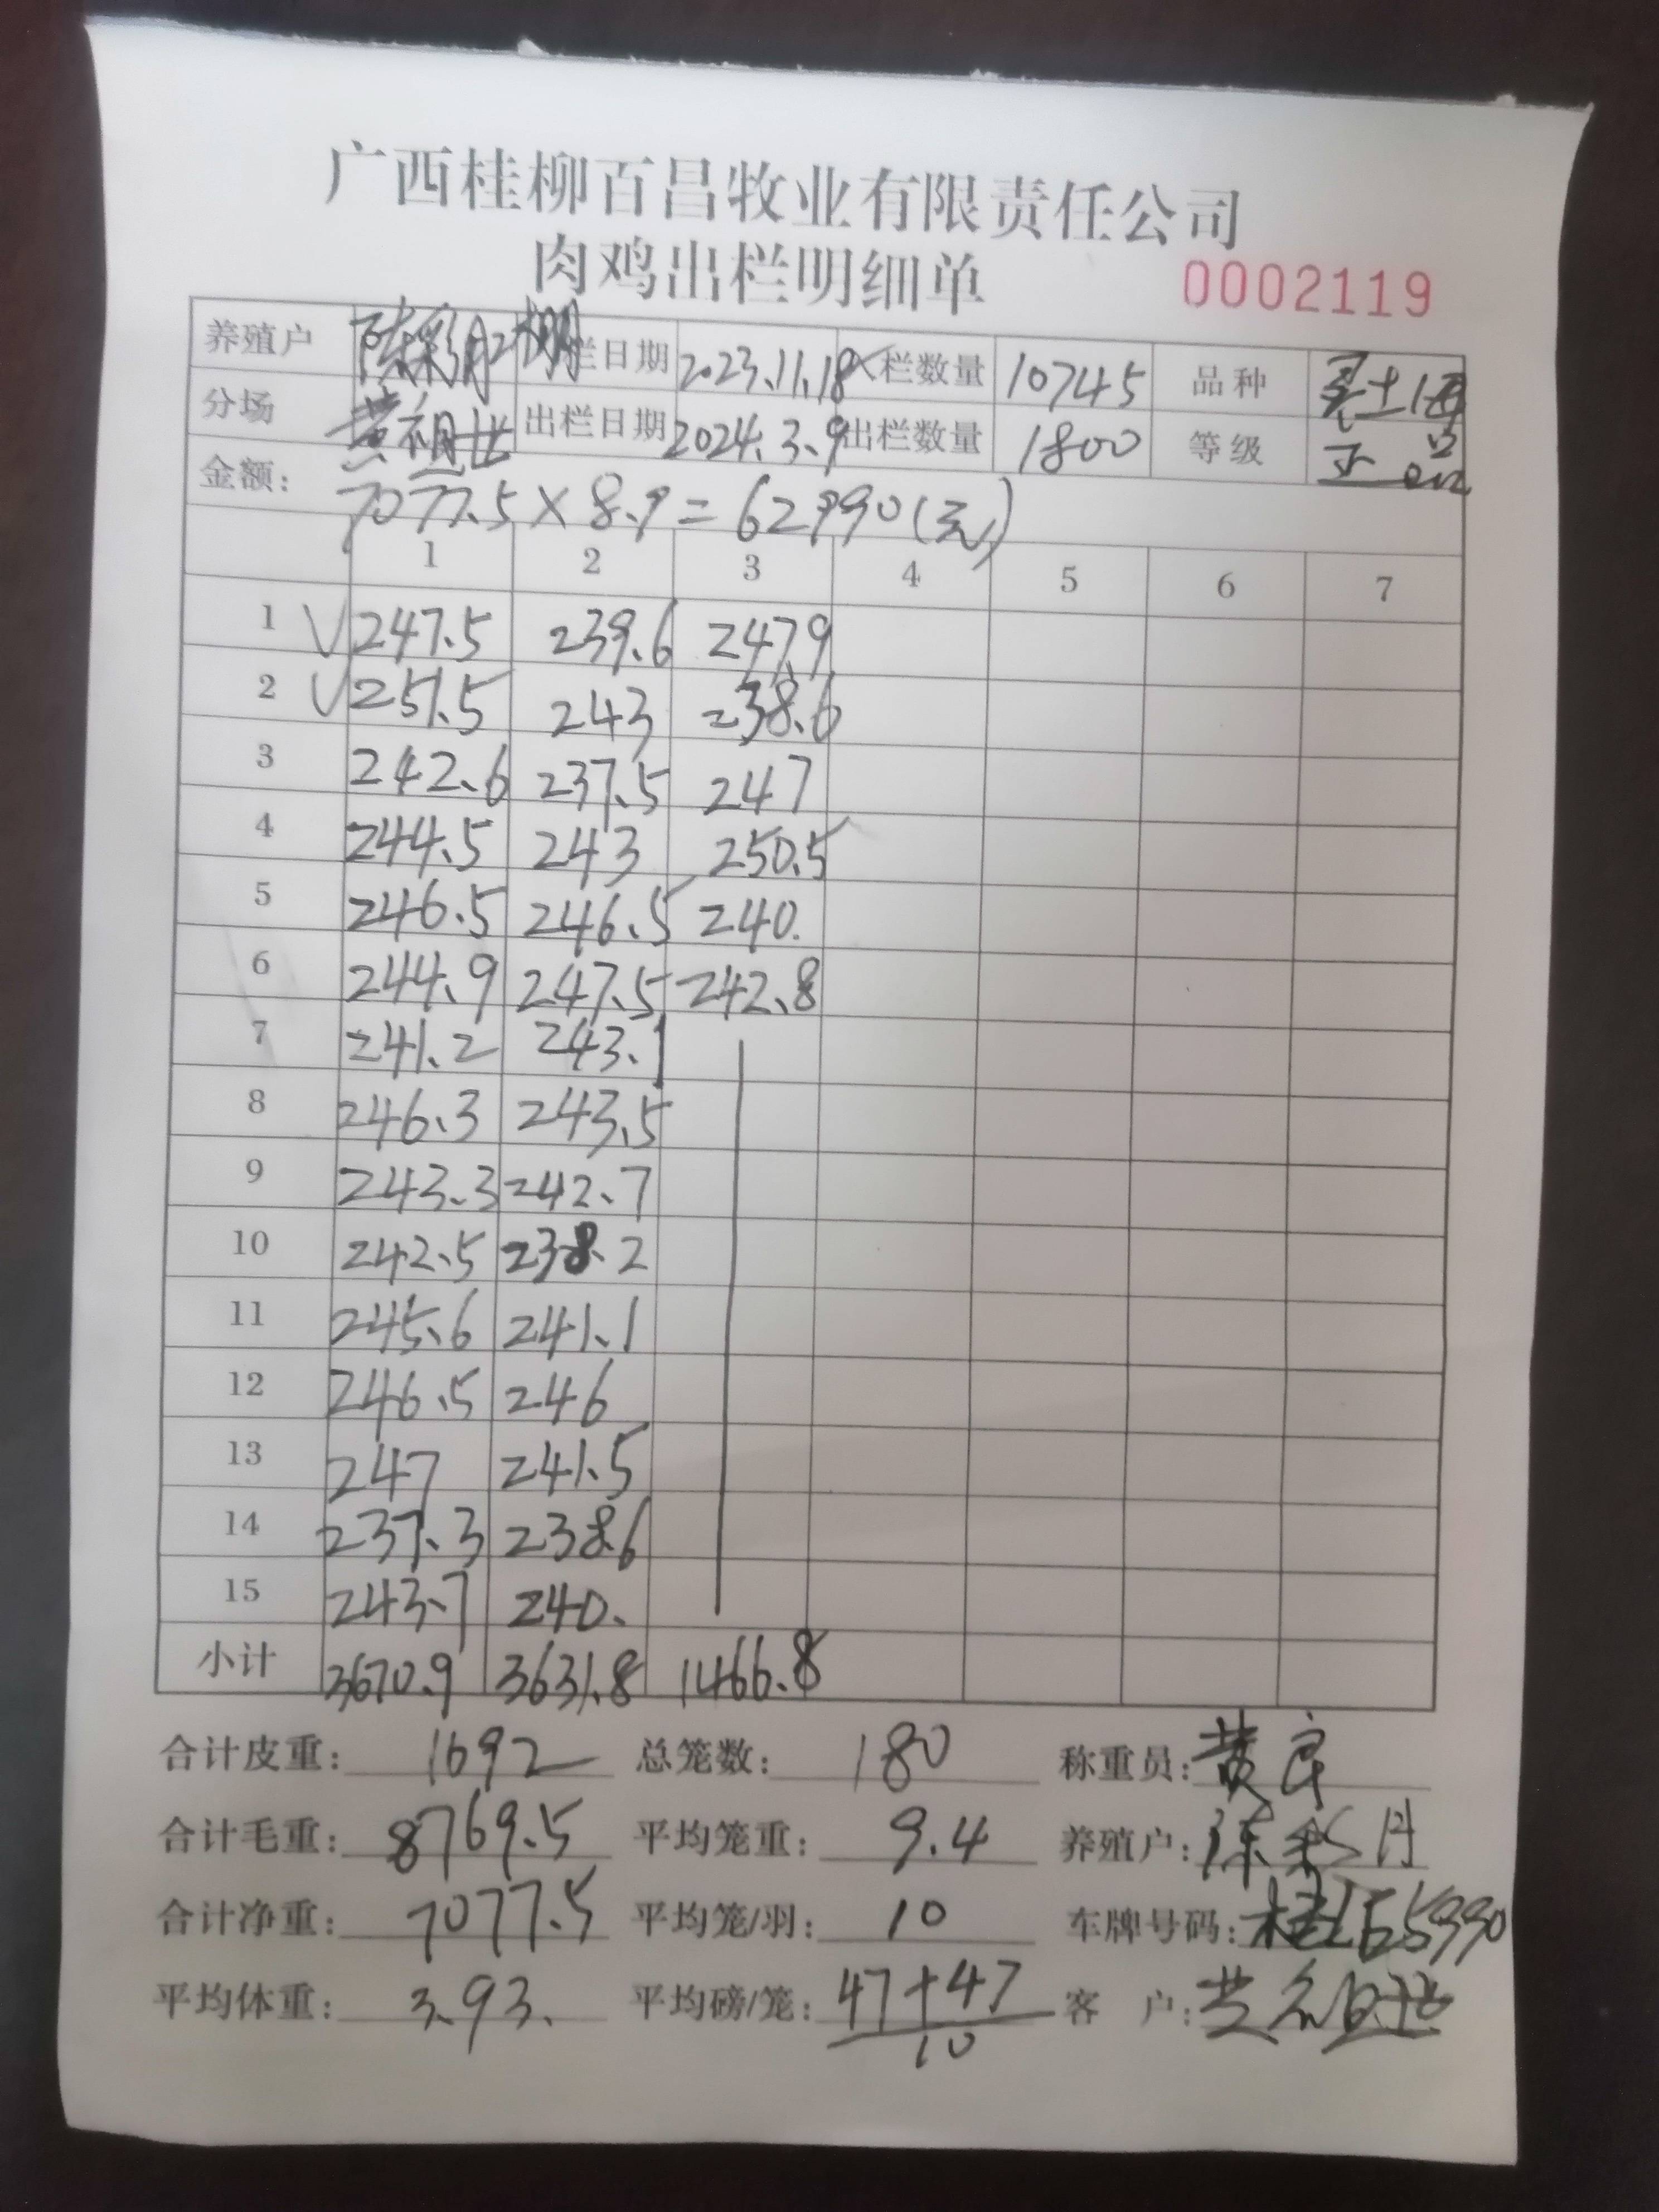 广西桂柳百昌牧业有限责任公司
肉鸡出栏明细单 0002119
养殖户 陈彩月2棚 栏日期 2023.11.18 入栏数量 10745 品种 土
分场 黄祖世 出栏日期 2024.3.9 出栏数量 1800 等级 正品
金额: 7077.5×8.9=62990(元)
1 2 3 4 5 6 7
1 √ 247.5 239.6 247.9
2 √ 251.5 243 238.6
3 242.6 237.5 247
4 244.5 243 250.5
5 246.5 246.5 240.
6 244.9 247.5 242.8
7 241.2 243.1
8 246.3 243.5
9 243.3 242.7
10 242.5 238.2
11 245.6 241.1
12 246.5 246
13 247 241.5
14 237.3 238.6
15 243.7 240.
小计 3670.9 3631.8 1466.8
合计皮重: 1692 总笼数: 180 称重员: 黄
合计毛重: 8769.5 平均笼重: 9.4 养殖户: 陈彩月
合计净重: 7077.5 平均笼/羽: 10 车牌号码: 桂 55990
平均体重: 3.93. 平均磅/笼: 47+47 客 户: 黄祖世
10